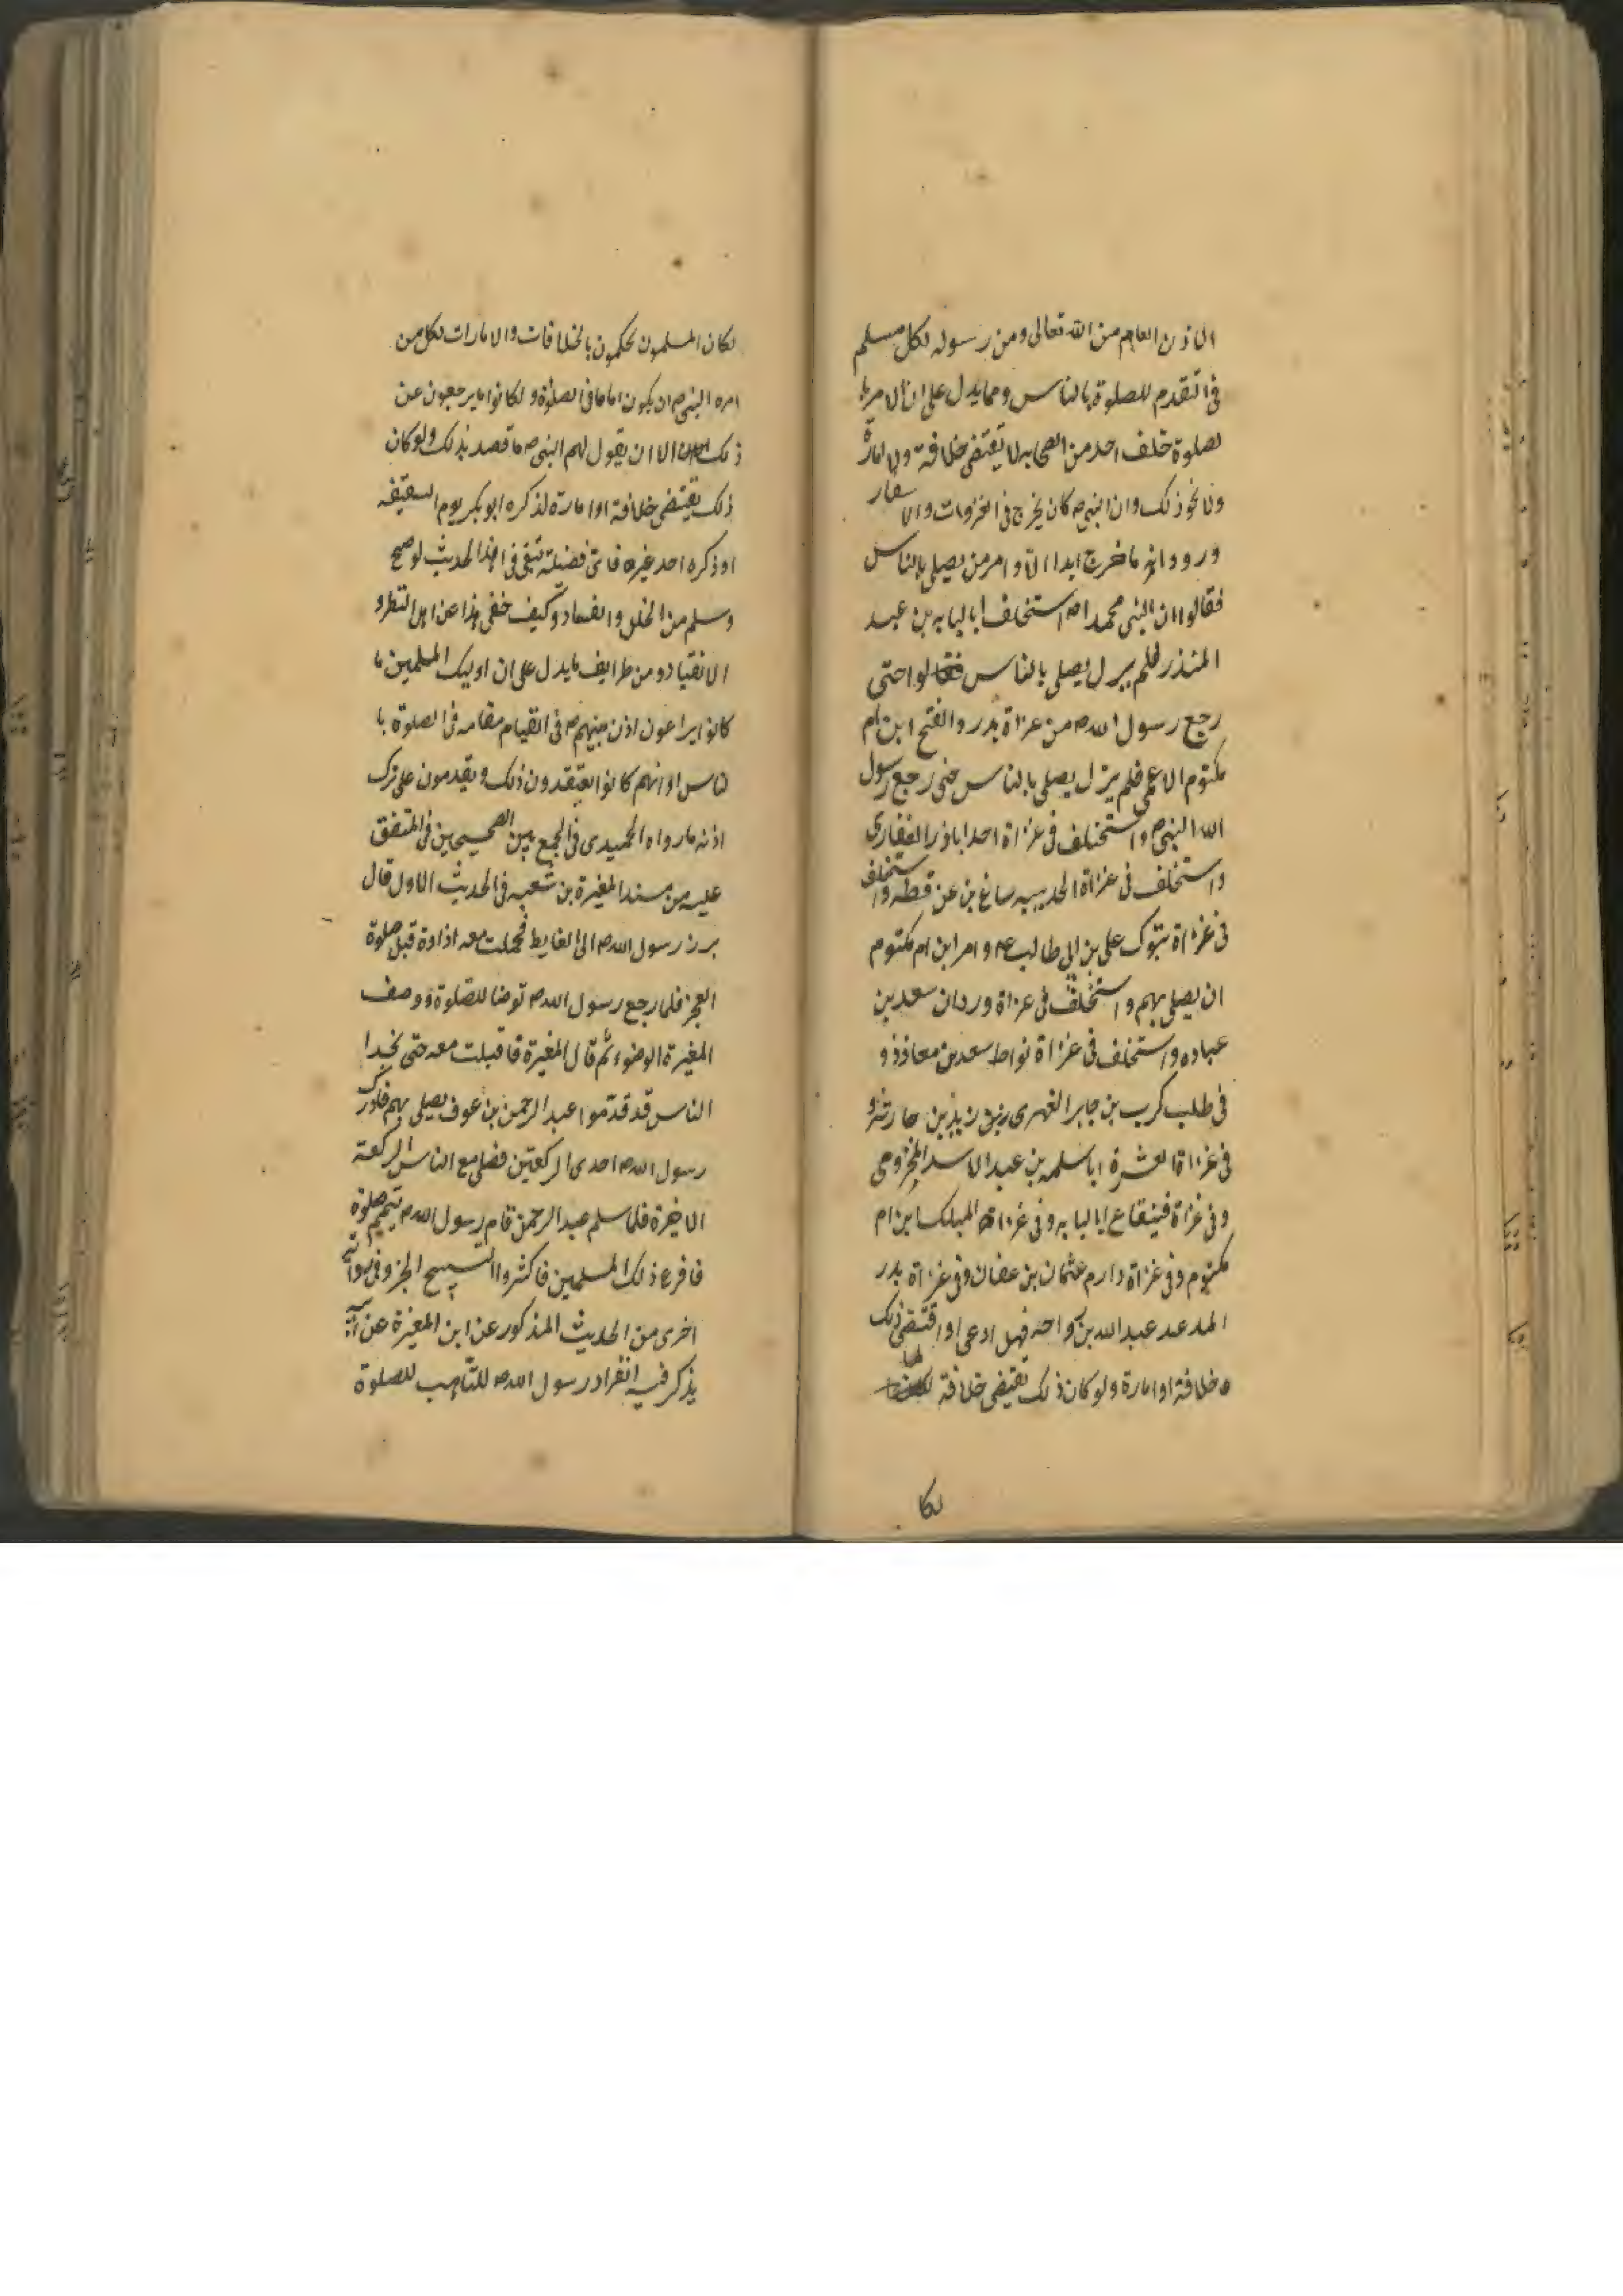 الاذن العام من الله تعالى ومن رسوله لكل مسلم
فى التقدم للصلوة بالناس ومما يدل على ان الامر با
لصلوة خلف احد من الصحابه لا يقتضى خلافة ولا امارة
ولا نحو ذلك وان النبى ص كان يخرج فى الغزوات والاسفار
ورووا انه ما خرج ابدا الا وامر من يصلى بالناس
فقالوا ان النبى محمدا ص استخلف ابا لبابه بن عبد
المنذر فلم يزل يصلى بالناس فقالوا حتى
رجع رسول الله ص من غزاة بدر والفتح ابن ام
مكتوم الاعمى فلم يزل يصلى بالناس حتى رجع رسول
الله النبى ص واستخلف فى غزاة احد اباذر الغفارى
واستخلف فى غزاة الحديبيه ساغ بن عن قطه واستخلف
فى غزاة تبوك على بن ابى طالب ع وامر ابن ام مكتوم
ان يصلى بهم واستخلف فى غزاة وردان سعد بن
عباده واستخلف فى غزاة نواط سعد بن معاذ ذو
فى طلب كرب بن جابر الفهرى زيد بن حارثه و
فى غزاة العشرة ابا سلمه بن عبد الاسد المخزومى
وفى غزاة قينقاع ابا لبابه وفى غزاة المهلك ابن ام
مكتوم وفى غزاة دارم عثمان بن عفان وفى غزاة بدر
عبد الله بن رواحه فهل ادعى او اقتضى ذلك
خلافة او امارة ولو كان ذلك يقتضى خلافة لها
لكا
لكان المسلمون يحكمون بالخلافات والامارات لكل من
امره النبى ص ان يكون اماما فى الصلوة ولكانوا ما يرجعون عن
ذلك الا ان يقول لهم النبى ص ما قصد بذلك ولو كان
ذلك يقتضى خلافة او امارة لذكره ابو بكر يوم السقيفه
او ذكره احد غيره فاى فضيلة تبقى فى هذا الحديث لو صح
وسلم من الخلل والفساد وكيف خفى هذا عن اهل النظر و
الانقياد ومن طرايف ما يدل على ان اوليك المسلمين ما
كانوا يراعون اذن نبيهم ص فى القيام مقامه فى الصلوة با
لناس او انهم كانوا يعتقدون ذلك ويقدمون على ترك
اذنه ما رواه الحميدى فى الجمع بين الصحيحين فى المتفق
عليه من مسند المغيرة بن شعبه فى الحديث الاول قال
برز رسول الله ص الى الغايط فحملت معه اداوة قبل صلوة
الفجر فلما رجع رسول الله ص توضا للصلوة ووصف
المغيرة الوضوء ثم قال المغيرة فاقبلت معه حتى نجدا
الناس قد قدموا عبد الرحمن بن عوف يصلى بهم فادرك
رسول الله ص احدى الركعتين فصلى مع الناس الركعة
الاخرة فلما سلم عبد الرحمن قام رسول الله ص يتمم صلوة
فافزع ذلك المسلمين فاكثروا التسبيح الخبر وفى رواية
اخرى من الحديث المذكور عن ابن المغيرة عن ابيه
يذكر فيه انفراد رسول الله ص للتاهب للصلوة